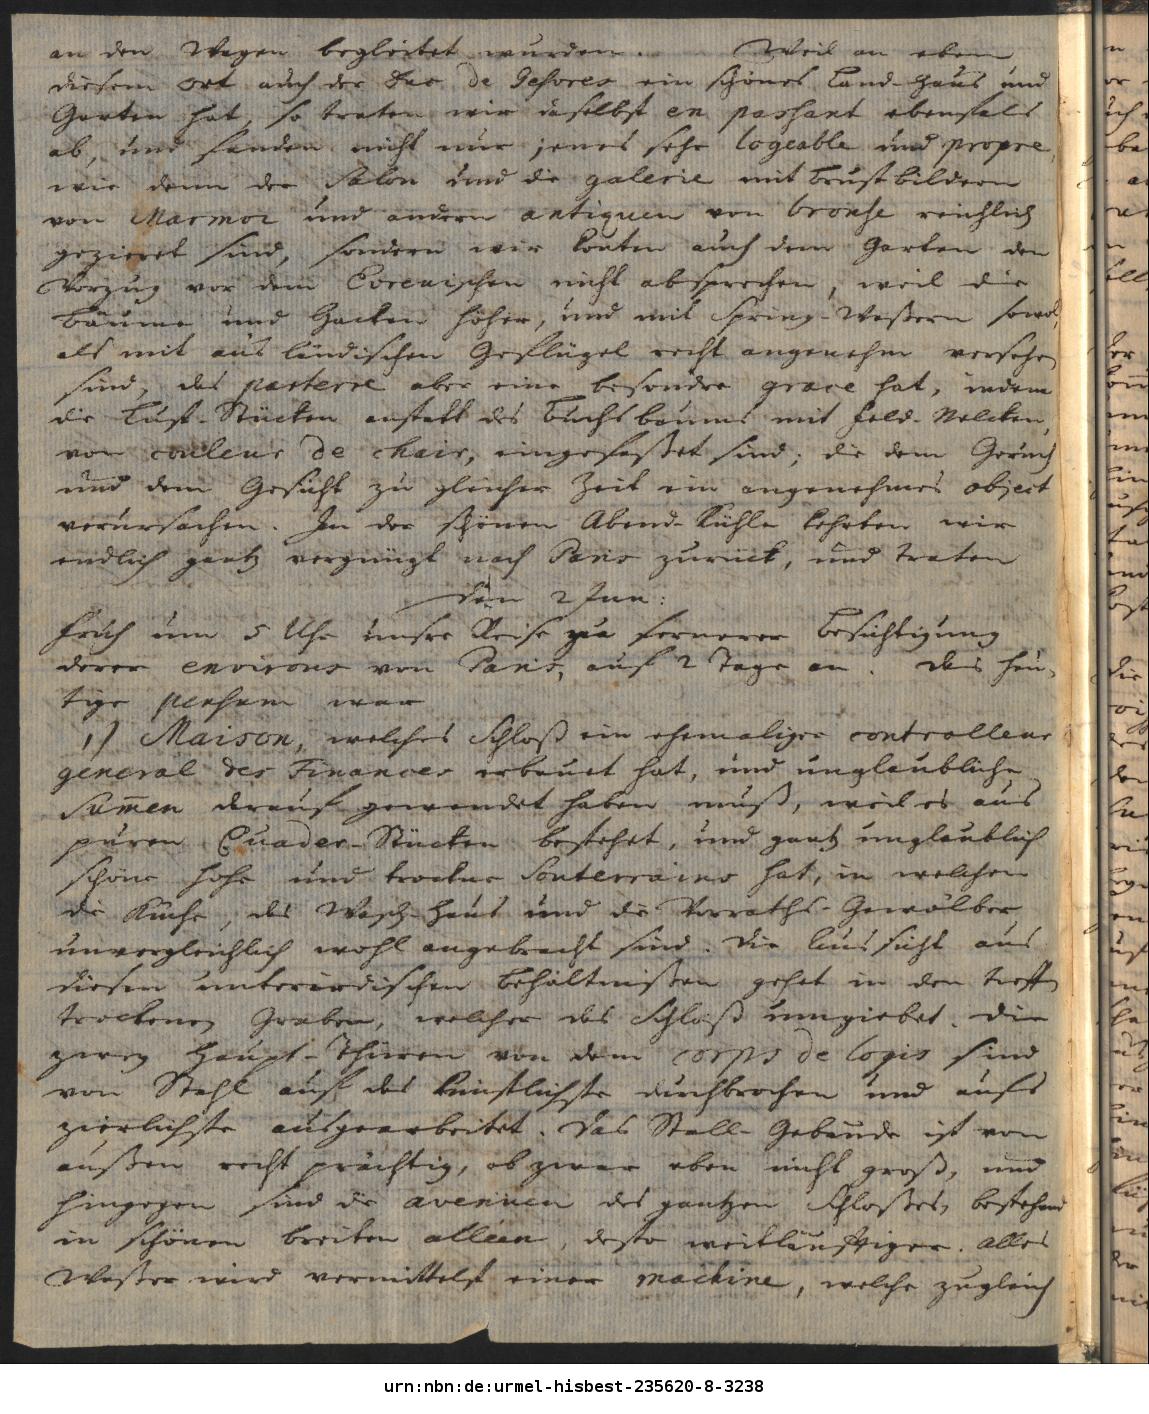 an den Wagen begleitet wurden. Weil an eben
diesem Ort auch der Duc de Gesvres ein schönes Land-Haus und
Garten hat, so traten wir daselbst en passant ebenfals
ab, und fanden nicht nur jenes sehr logeable und propre,
wie denn der Salon und die galerie mit Brustbildern
von Marmor und andern antiquen von bronse reichlich
gezieret sind, sondern wir konten auch dem Garten den
Vorzug vor dem nicht absprechen, weil die
Bäume und Hecken höher, und mit Spring-Waßern sowol,
als mit ausländischen Geflügel recht angenehm versehen
sind, das parterre aber eine besondre grace hat, indem
die Lust-Stücken anstatt des Buchsbaums mit Feld-Nelcken,
von couleur de chair, eingefaßet sind; die dem Geruch
und dem Gesicht zu gleicher Zeit ein angenehmes object
verursachen. In der schönen Abend-Kühle kehrten wir
endlich gantz vergnügt nach Paris zurück, und traten
den 2 Jun:
früh um 5 Uhr unsre Reise zu fernerer Besichtigung
derer environs von Paris, auf 2 Tage an. Das heu-
tige pensum war
1) Maison, welches Schloß ein ehemaliger controlleur
general des Finances erbauet hat, und unglaubliche
Sum̄en darauf gewendet haben muß, weil es aus
puren Quader-Stücken bestehet, und gantz unglaublich
schöne hohe und trockne Souterrains hat, in welchen
die Küche, das Wasch-Haus und die Vorraths-Gewölber
unvergleichlich wohl angebracht sind. Die Aussicht aus
diesen unterirdischen Behältnißen gehet in den tieffen
trockenen Graben, welcher das Schloß umgiebet. Die
zwey Haupt-Thüren von dem corps de logis sind
von Stahl auf das künstlichste durchbrochen und aufs
zierlichste ausgearbeitet. Das Stall-Gebäude ist von
außen recht prächtig, ob zwar eben nicht groß, und
hingegen sind die avenuen des gantzen Schloßes, bestehend
in schönen breiten alleen, desto weitläuftiger. Alles
Waßer wird vermittelst einer machine, welche zugleich